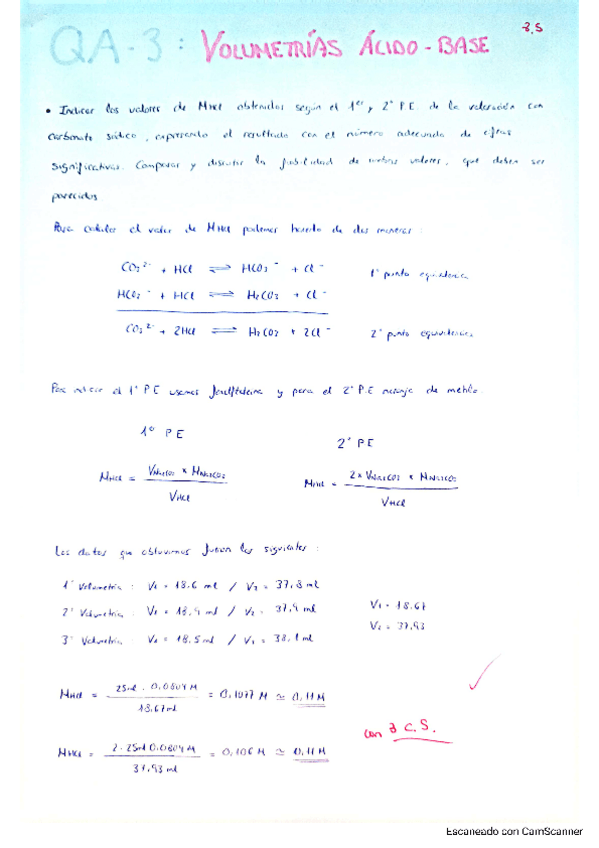 QA-3: VOLUMETRÍAS ÁCIDO-BASE
8,5
• Indicar los valores de MHCl obtenidos según el 1er y 2º P.E. de la valoración con
carbonato sódico, expresando el resultado con el número adecuado de cifras
significativas. Comparar y discutir la fiabilidad de ambos valores, que deben ser
parecidos
Para calcular el valor de MHCl podemos hacerlo de dos maneras:
CO3²⁻ + HCl ⇌ HCO3⁻ + Cl⁻
1º punto equivalencia
HCO3⁻ + HCl ⇌ H2CO3 + Cl⁻
CO3²⁻ + 2HCl ⇌ H2CO3 + 2Cl⁻
2º punto equivalencia
Para indicar el 1º P.E usamos fenolftaleina y para el 2º P.E naranja de metilo.
1º PE
2º PE
MHCl = VNa2CO3 × MNa2CO3 / VHCl
MHCl = 2 × VNa2CO3 × MNa2CO3 / VHCl
Los datos que obtuvimos fueron los siguientes:
1ª Volumetría: V1 = 18.6 ml / V2 = 37,8 ml
2ª Volumetría: V1 = 18,9 ml / V2 = 37,9 ml
3ª Volumetría: V1 = 18,5 ml / V2 = 38,1 ml
V1 = 18.67
V2 = 37,93
MHCl = 25ml · 0,0804 M / 18,67ml = 0,1077 M ≃ 0,11 M
MHCl = 2 · 25ml 0,0804 M / 37,93 ml = 0,106 M ≃ 0,11 M
con 3 C.S.
Escaneado con CamScanner